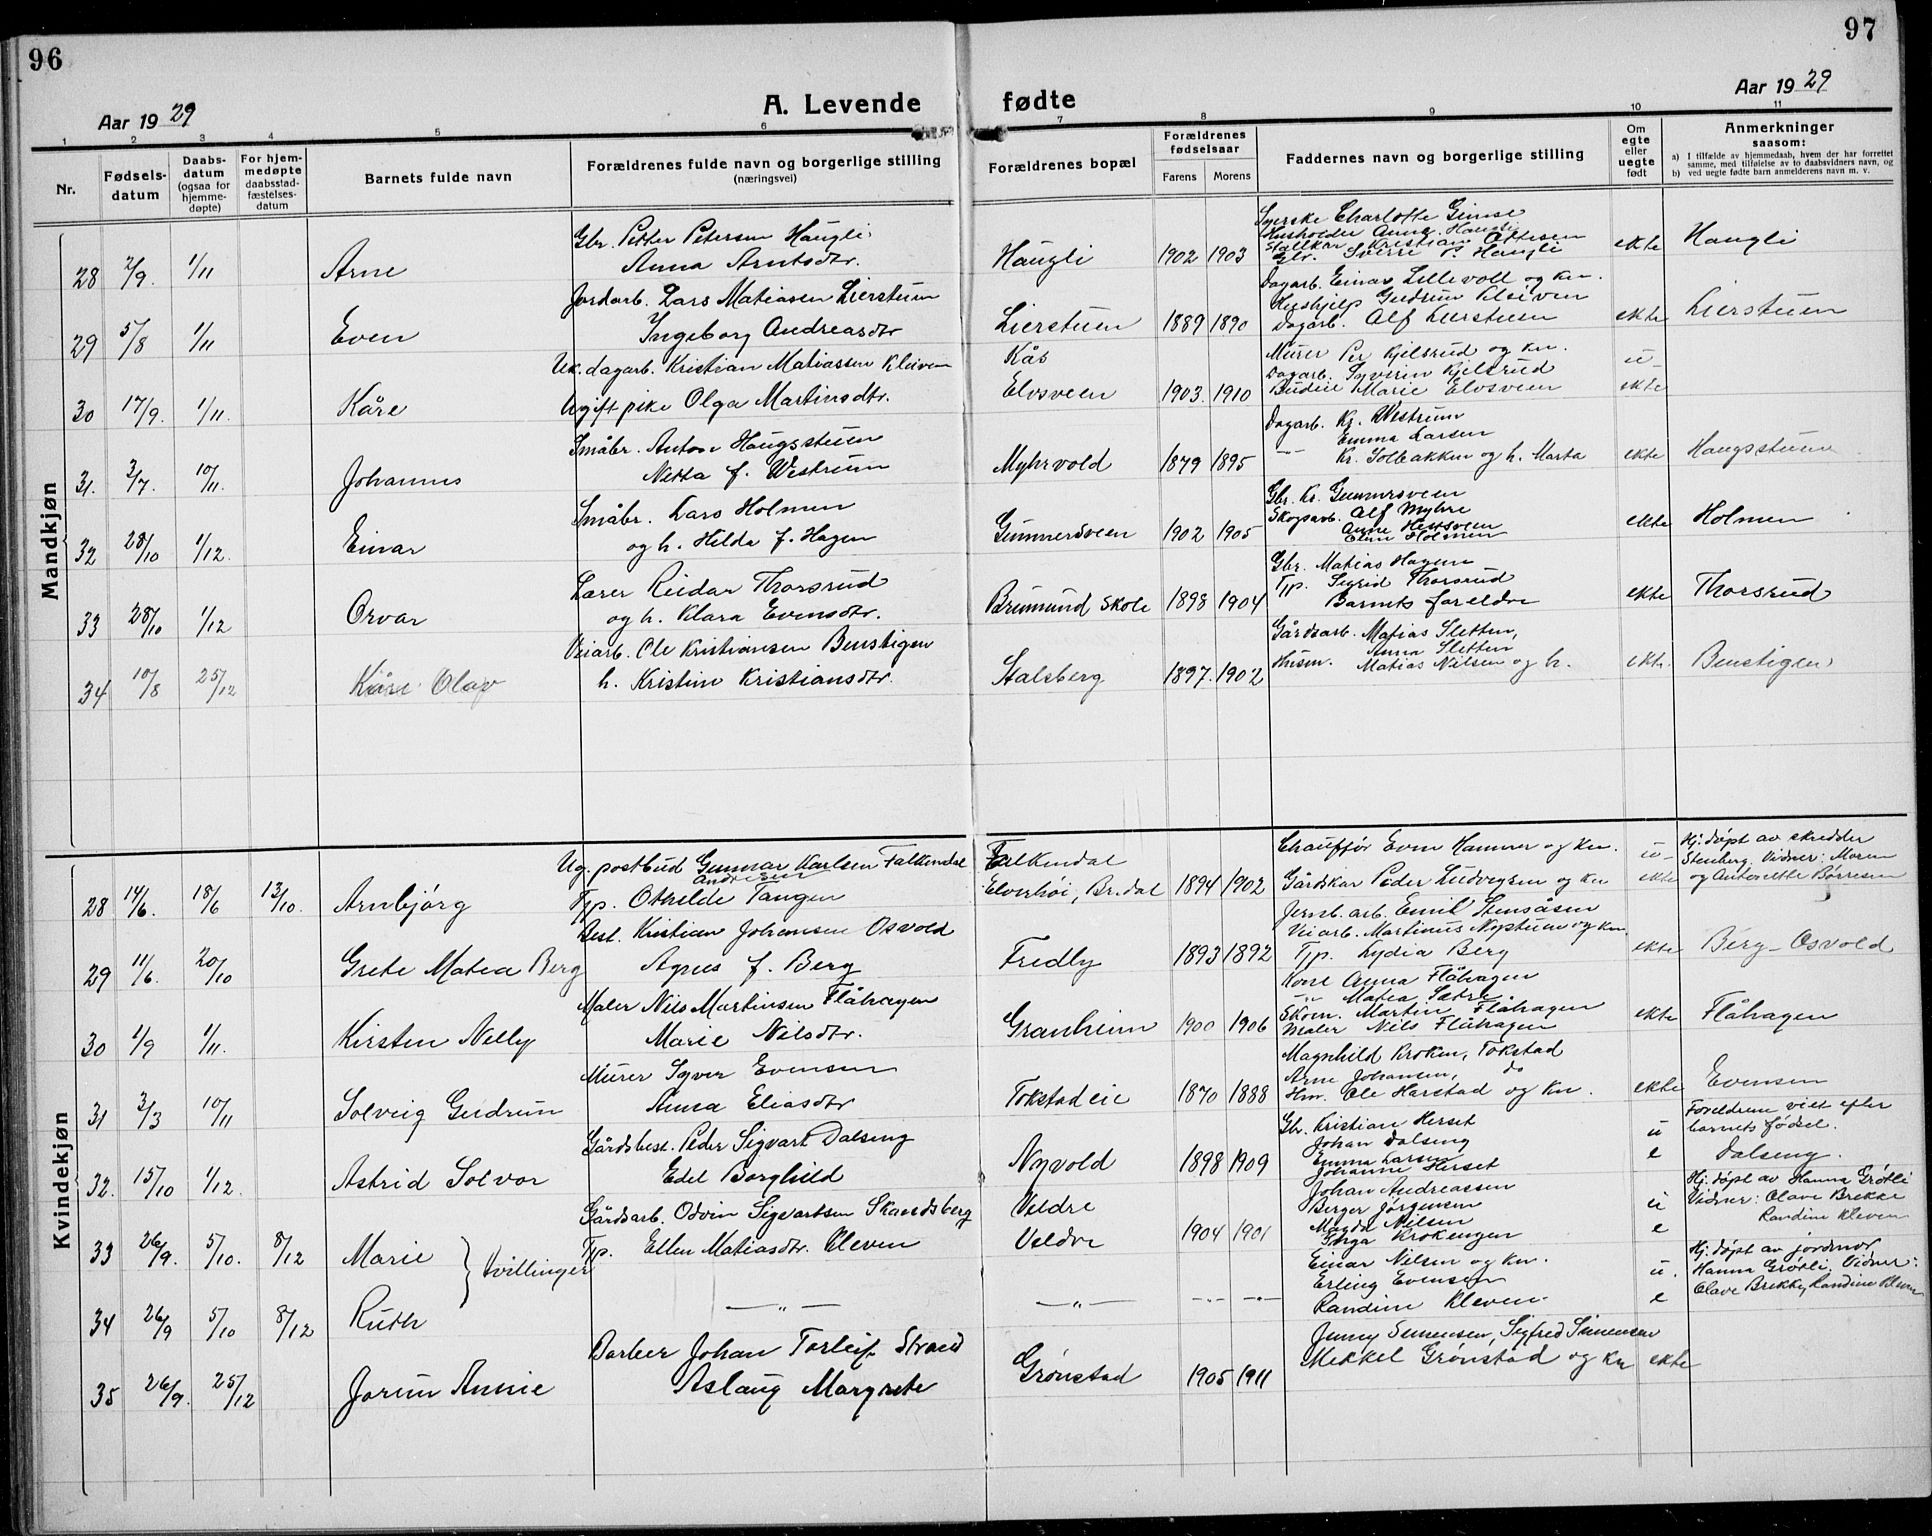 96
97
Aar 1929
A. Levende fødte
Aar 1929
1 2 3 4 5 6 7 8 9 10 11
Nr.
Fødsels-
datum
Daabs-
datum
(ogsaa for
hjemme-
døpte)
For hjem-
medøpte
daabsstad-
fæstelses-
datum
Barnets fulde navn
Forældrenes fulde navn og borgerlige stilling
(næringsvei)
Forældrenes bopæl
Forældrenes
fødselsaar
Farens Morens
Faddernes navn og borgerlige stilling
Om
egte
eller
uegte
født
Anmerkninger
saasom:
a) I tilfælde av hjemmedaab, hvem der har forrettet
samme, med tilføielse av to daabsvidners navn, og
b) ved uegte fødte barn anmelderens navn m. v.
Mandkjøn
28 2/9 1/11 Arne
Gbr. Petter Petersen Haugli
Anna Arntsdtr.
Haugli 1902 1903
Syerske Charlotte Gimse
Husholder Anna Haugli
Stallkar Kristian Ottesen
Gbr. Sverre P. Haugli
ekte Haugli
29 5/8 1/11 Even
Jordarb. Lars Matiasen Lierstuen
Ingeborg Andreasdtr
Lierstuen 1889 1890
Dagarb. Einar Lillevoll og kn.
Hushjelp Gudrun
Dagarb. Alf Lierstuen
ekte Lierstuen
30 17/9. 1/11. Kåre
Uk. dagarb. Kristian Matiassen Kleiven
Ugift pike Olga Martinsdtr.
Kås
Elvsveen 1903. 1910
Murer Per Kjelsrud og kn.
Dagarb. Syverin Kjelsrud
Budeie Marie Elvsveen
u-
ekte
31. 3/7. 10/11. Johannes
Småbr. Anton Haugsstuen
Netta f. Westrum
Myhrvold 1879 1895
Dagarb. Kr. Westrum
Emma Larsen
-"- Kr. Solbakken og h. Marta
ekte Haugsstuen
32 28/10 1/12. Einar
Småbr. Lars Holmen
og h. Hilda f. Hagen
Gunnersveen 1902 1905
Gbr. Kr. Gunnersveen
Skogsarb. Alf Myhre
Anne Hestsveen
Elin Holmen
ekte Holmen
33 28/10 1/12 Orvar
Lærer Reidar Thorsrud
og h. Klara Evensdtr.
Brumund skole 1898 1904
Gbr. Matias Hagen
Tjp. Sigrid Thorsrud
Barnets foreldre
ekte Thorsrud
34 10/8 25/12 Kåre Olav
Veiarb. Ole Kristiansen Benstigen
h. Kristine Kristiansdtr.
Stalsberg 1897. 1902
Gårdsarb. Matias Sletten,
Anna Sletten
Husm. Matias Nilsen og h.
ekte Benstigen
Kvindekjøn
28 14/6. 18/6 13/10. Arnbjørg
Ug. postbud Gunnar Karlsen Falkendal
Andresen
Tjp. Othilde Tangen
Falkendal
Elverhøi, Br.dal 1894 1902
Chauffør Even Hammer og kn.
Gårdskar Peder Ludvigsen og kn
u-
ekte
Hj. døpt av skredder
Stenberg. Vidner: Moren
og Antonette Børresen
29 11/6. 20/10 Grete Matea Berg
Best. Kristian Johansen Osvold
Agnes f. Berg
Fredly 1893 1892
Jernb. arb. Emil Stensåsen
Veiarb. Martinus Nystuen og kn
Tjp. Lydia Berg
ekte Berg-Osvold
30 1/9 1/11. Kirsten Nelly
Maler Nils Martinsen Flåhagen
Marie Nilsdtr.
Granheim 1900 1906
Kone Anna Flåhagen
-"- Matea Sætre
Skom. Martin Flåhagen
Maler Nils Flåhagen
ekte Flåhagen
31 3/3 10/11 Solveig Gudrun
Murer Syver Evensen
Anna Eliasdtr
Tokstadeie 1870 1888
Magnhild Kroken, Tokstad
Arne Johansen, do
Hm. Ole Harstad og kn.
ekte Evensen
32. 15/10 1/12. Astrid Solvor
Gårdsbest. Peder Sigvart Dalseng
Edel Borghild
Nyvold 1898 1909
Gbr. Kristian Herset
Johan Dalseng
Emma Larsen
Johanne Herset
u
e
Foreldrene viet efter
barnets fødsel.
Dalseng.
33 26/9. 5/10. 8/12 Marie } tvillinger
Gårdsarb. Odvin Sigvartsen Skavdsberg
Tjp. Ellen Matiasdtr. Kleven
Veldre
Veldre 1904 1901
Johan Andreassen
Berger Jørgensen
Magda Nilsen
Helga Krokengen
u
e
Hj. døpt av Hanna Grøtli
Vidner: Olave Brekke
Randine Kleven
34 26/9 5/10 8/12 Ruth
— " —
— " — -"- -"-
Einar Nilsen og kn.
Erling Evensen
Randine Kleven.
u.
e
Hj. døpt av jordmor
Hanna Grøtli. Vidner:
Olave Brekke, Randine Kleven
35 26/9. 25/12 Jorun Annie
Barber Johan Torleif Strand
Aslaug Margrete
Grønstad 1905 1911
Jenny Simensen, Sigfred Simensen
Mekkel Grønstad og kn
ekte